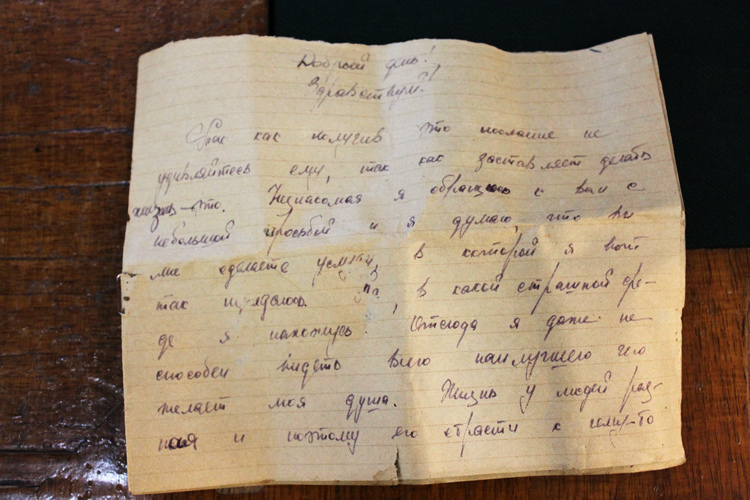 Добрый день!,
Здравствуй!
Так как получив это послание не
удивляйтесь ему, так как заставляет делать
жизнь это. Незнакомая я обращаюсь к вам с
небольшой просьбой и я думаю, что вы
мне сделаете, в которой я
так нуждаюсь., в какой страшной сре-
де я нахожусь. Отсюда я даже не
способен видеть всего наилучшего чего
желает моя душа. Жизнь у людей раз-
ная и поэтому его страсти к чему-то